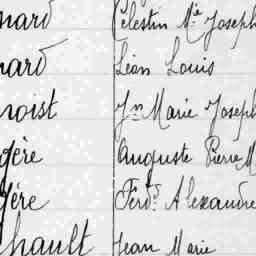 nard Célestin Mie Joseph
nard Léon Louis
noist Jn Marie Joseph
gère Auguste Pierre M
gère Ferdd Alexandre
hault Jean Marie